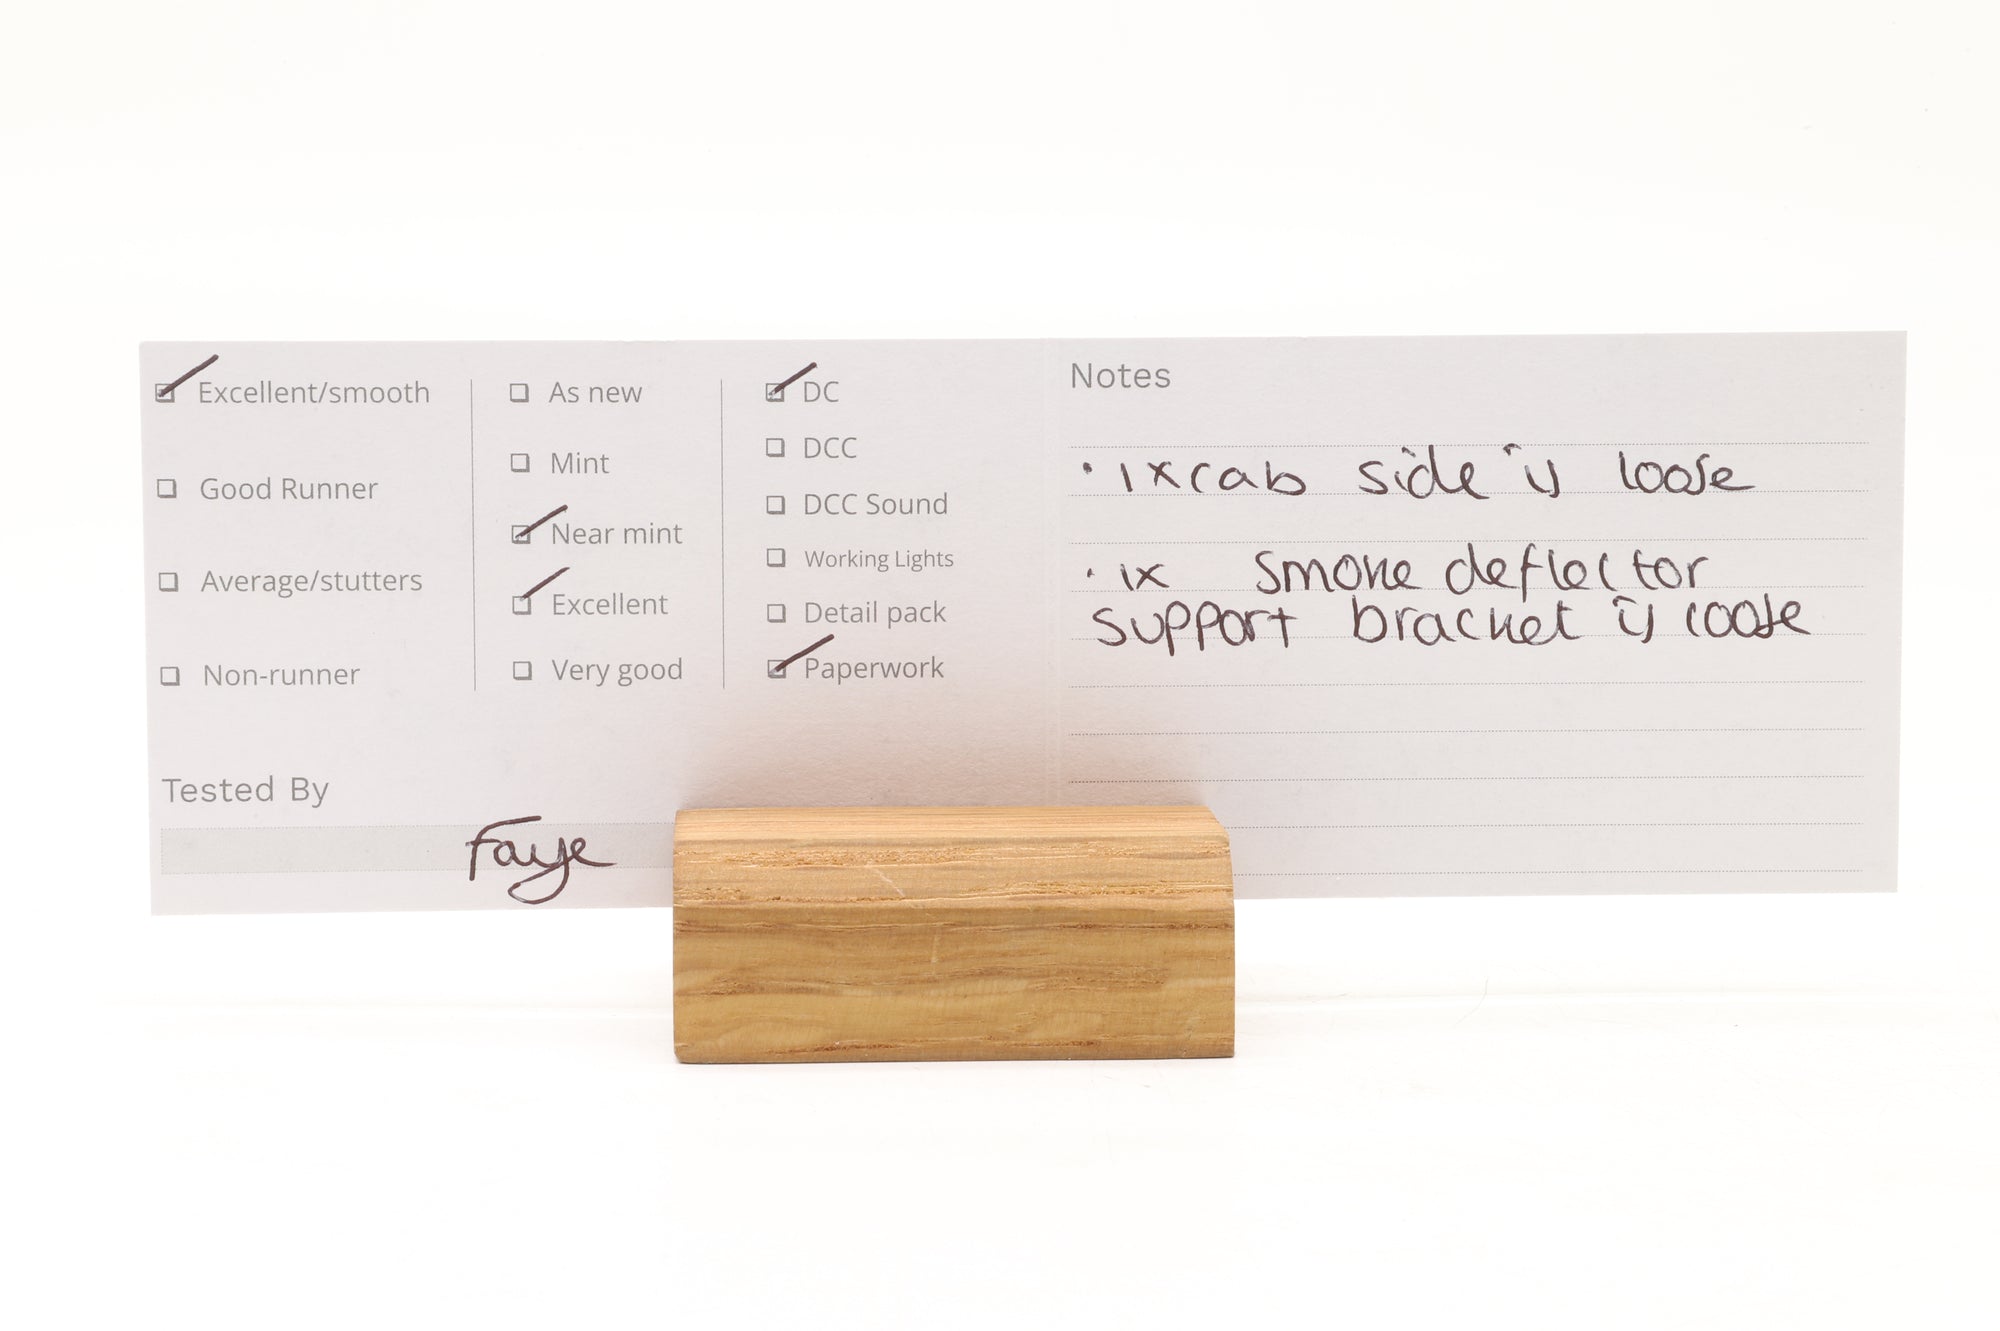 Excellent/smooth
Good Runner
Average/stutters
Non-runner
As new
Mint
Near mint
Excellent
Very good
DC
DCC
DCC Sound
Working Lights
Detail pack
Paperwork
Tested By
Faye
Notes
· 1x cab side is loose
· 1x smoke deflector
support bracket is loose